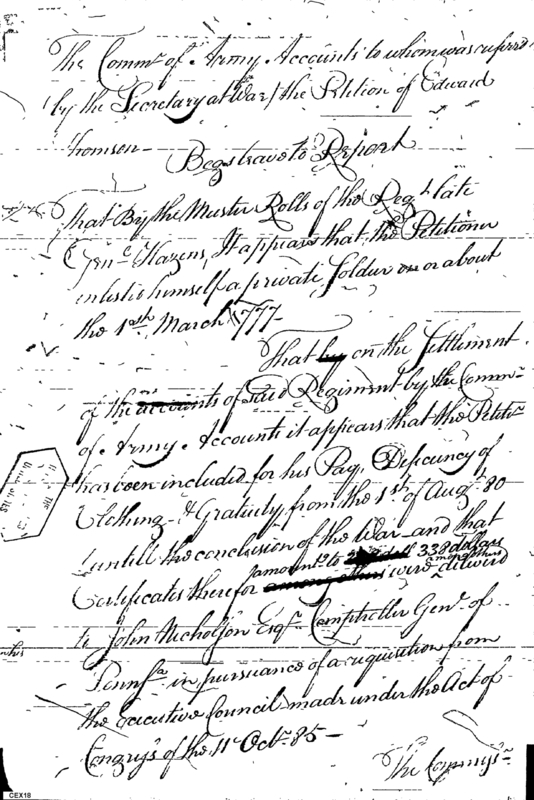 The Commr. of Army Accounts to whom was referred
(by the Secretary at War) the Petition of Edward
Thomson
Begs leave to Report
That By the Muster Rolls of the Regt. late
Genl. Hazens, It appears that the Petitioner
enlisted himself a private Soldier on or about
the 1st March 1777.
That by on the Settlement
of the accounts of Said Regiment by the Commr.
of Army Accounts it appears that the Petitr.
has been included for his Pay, Deficiency of
Clothing & Gratuity from the 1st of Augt. 80
untill the conclusion of the War and that
amountg. to 338 dollars
Certificates therefor among others were among others deliverd
to John Nicholson Esqr. Comptroller Genl. of
Pennsa. in pursuance of a requisition from
the Executive Council made under the Act of
Congrys of the 11 Octr. 85 —
The Commrs.
CEX18